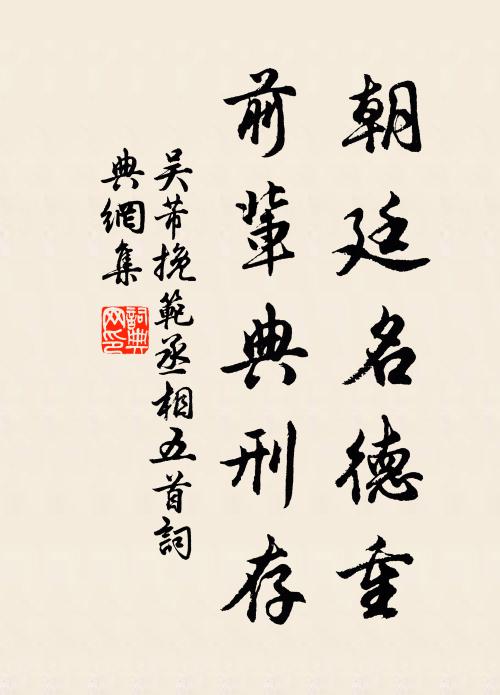 朝廷名德重
前輩典刑存
吴芾挽範丞相五首詞
典網集
詞典
网印